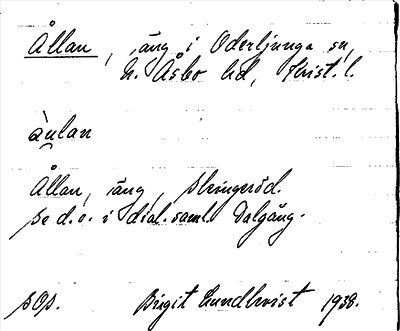 Ållan, äng i Oderljunga sn,
N. Åsbo hd, Krist. l.
àulan
Ållan, äng, Skingeröd.
Se d. o. i dial. saml. Dalgång.
SOP. Birgit Lundkvist 1938.